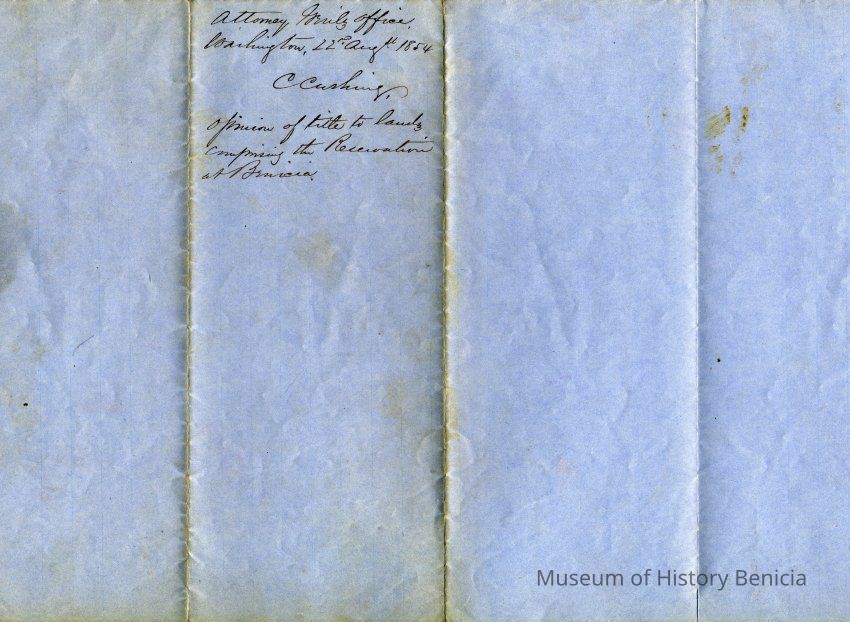 Attorney Genls office,
Washington, 22nd Augt. 1854
C Cushing,
Opinion of title to lands
comprising the Reservation
at Benicia.
Museum of History Benicia